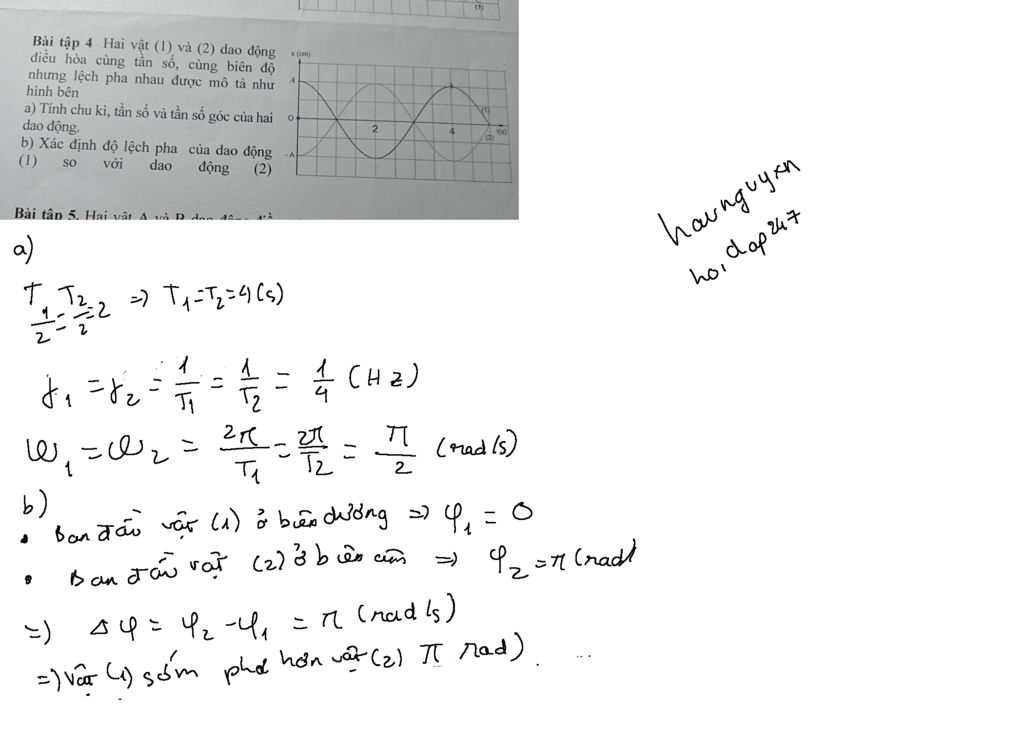 (1)
Bài tập 4 Hai vật (1) và (2) dao động
điều hòa cùng tần số, cùng biên độ
nhưng lệch pha nhau được mô tả như
hình bên
a) Tính chu kì, tần số và tần số góc của hai
dao động.
b) Xác định độ lệch pha của dao động
(1) so với dao động (2)
x (cm)
A
O
2
4
(1)
t(s)
(2)
-A
Bài tập 5. Hai vật A và B dao động
a)
T₁/2 = T₂/2 = 2 => T₁ = T₂ = 4 (s)
f₁ = f₂ = 1/T₁ = 1/T₂ = 1/4 (Hz)
ω₁ = ω₂ = 2π/T₁ = 2π/T₂ = π/2 (rad/s)
b)
• Ban đầu vật (1) ở biên dương => φ₁ = 0
• Ban đầu vật (2) ở biên âm => φ₂ = π (rad)
=> Δφ = φ₂ - φ₁ = π (rad/s)
=> Vật (1) sớm pha hơn vật (2) π rad) . ...
haunguyxn
hoidap247